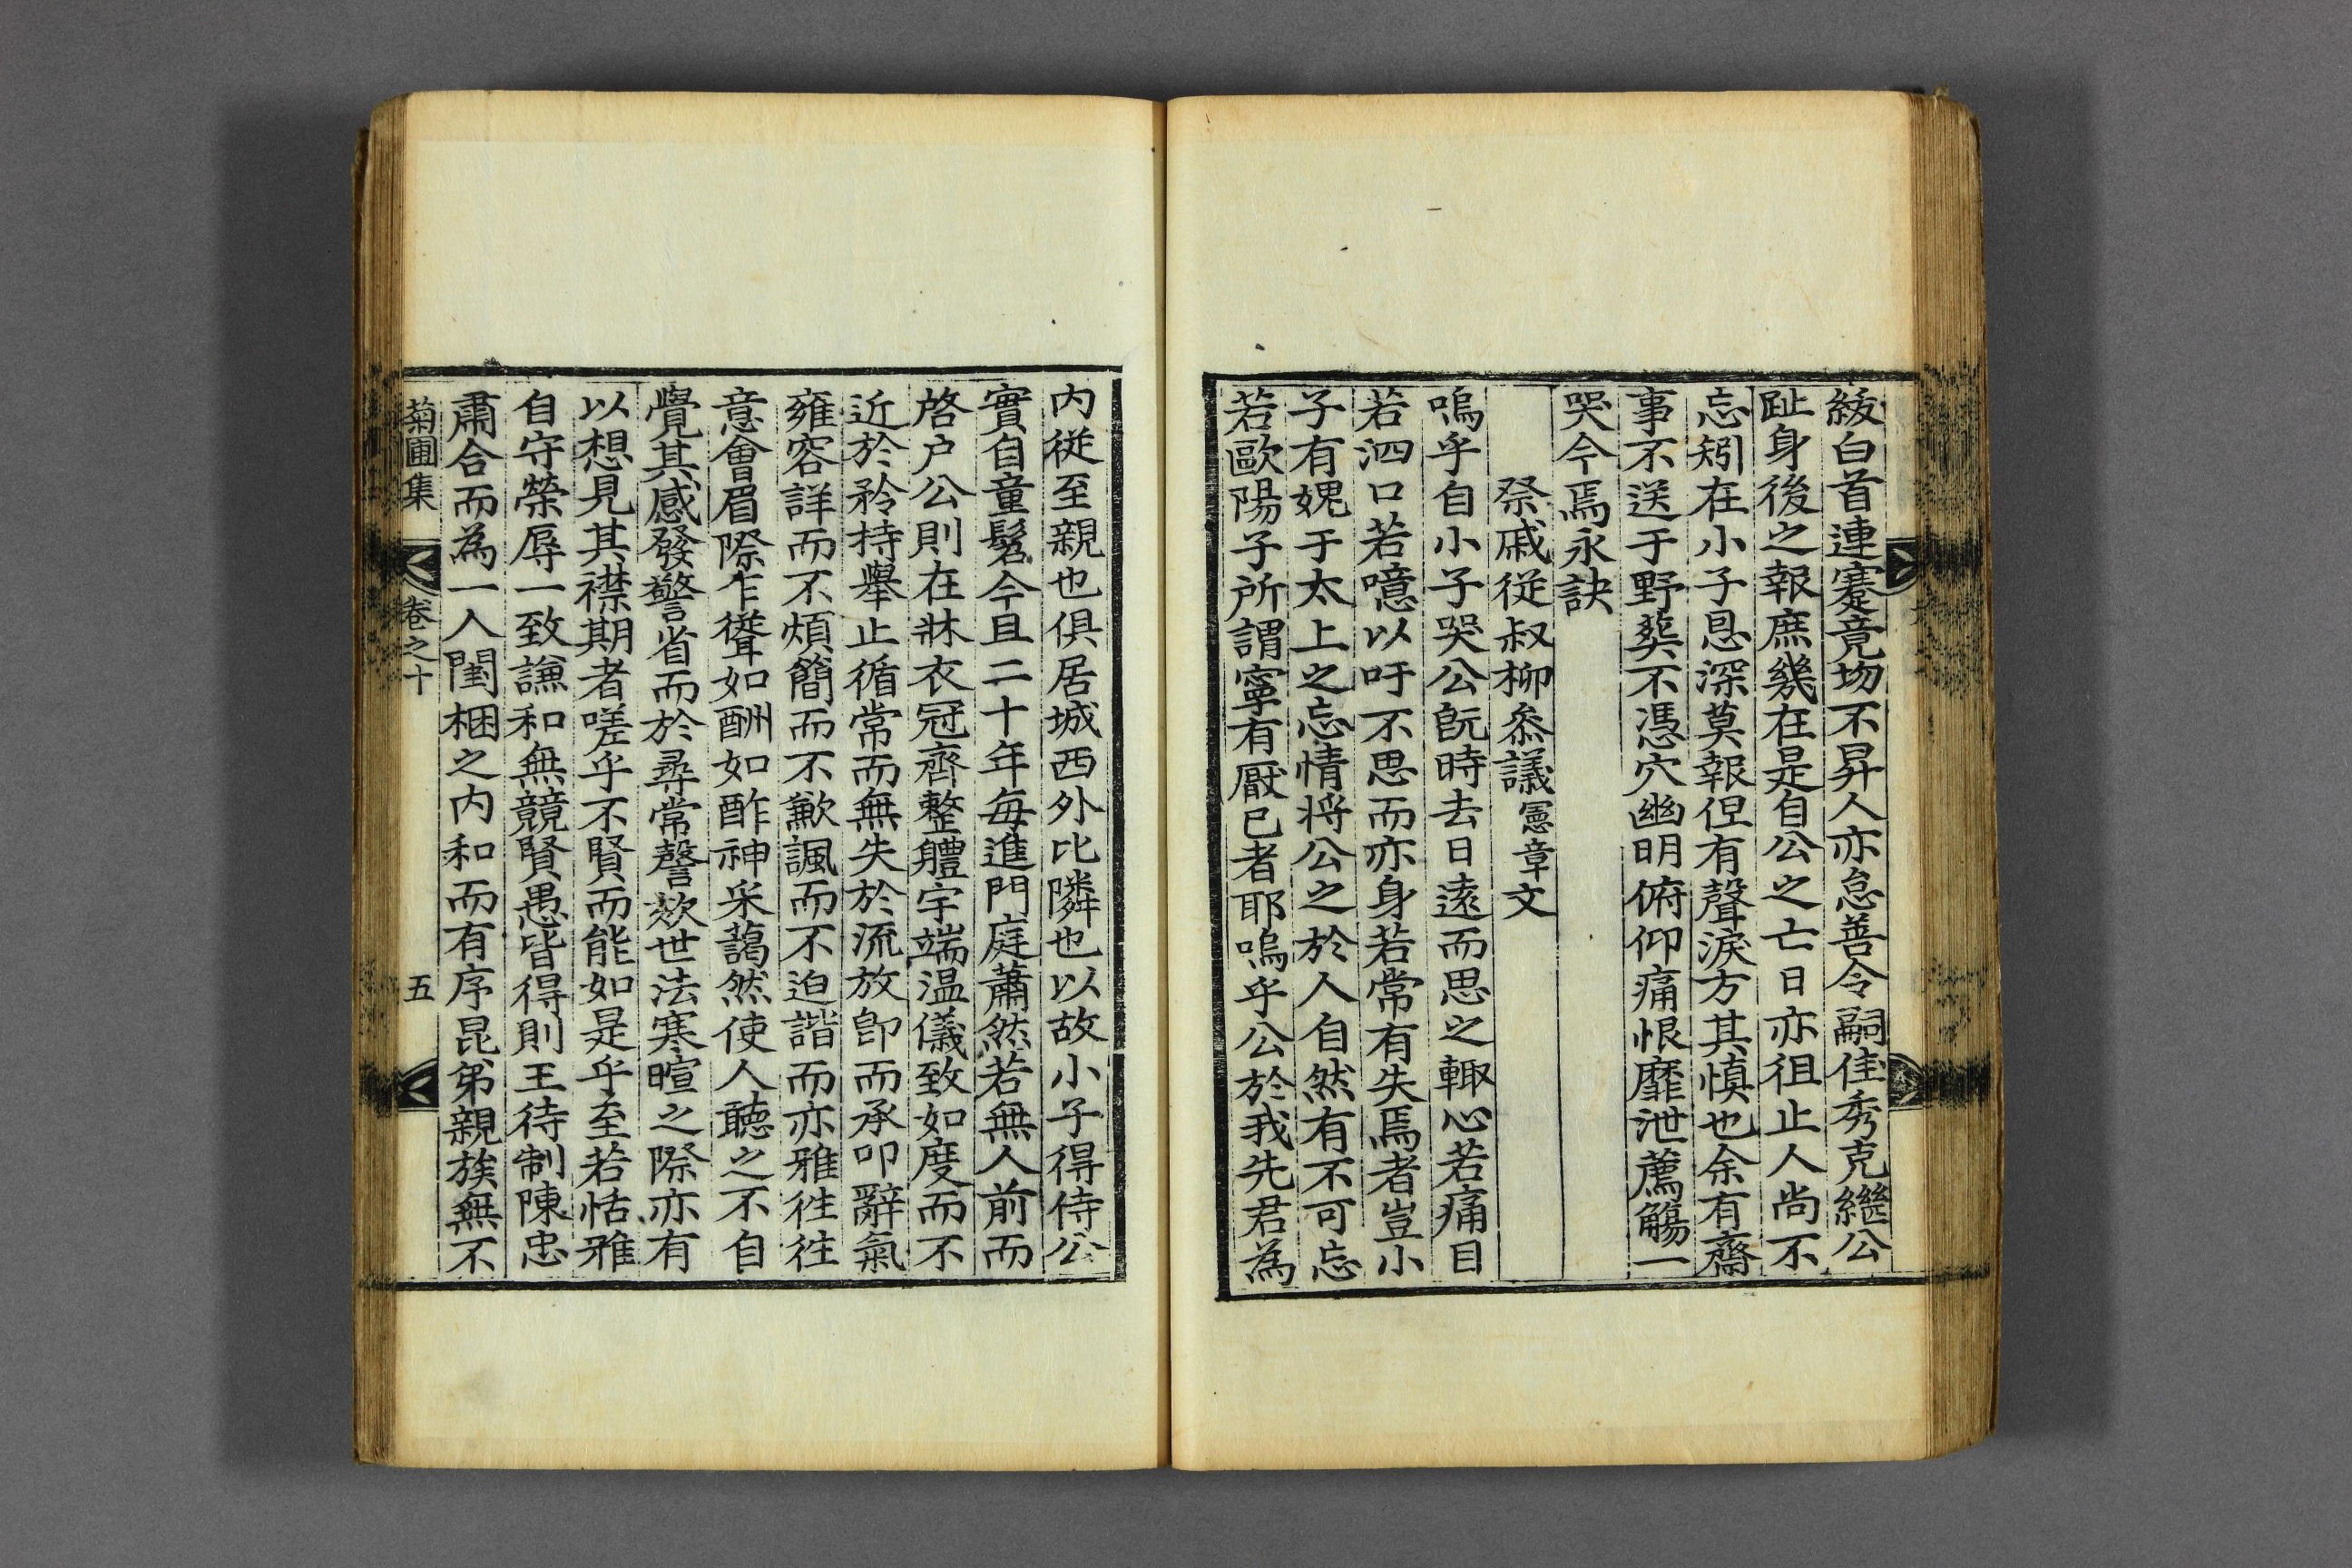 綾白首連蹇竟坳不昇人亦怠善令嗣佳秀克繼公
趾身後之報庶幾在是自公之亡日亦徂止人尚不
忘矧在小子恩深莫報但有聲淚方其慎也余有齋
事不送于野葬不憑穴幽明俯仰痛恨靡泄薦觴一
哭今焉永訣
祭戚從叔柳叅議憲章文
嗚乎自小子哭公旣時去日遠而思之輒心若痛目
若泗口若噫以吁不思而亦身若常有失焉者豈小
子有媿于太上之忘情將公之於人自然有不可忘
若歐陽子所謂寧有厭已者耶嗚乎公於我先君為
内從至親也俱居城西外比隣也以故小子得侍公
實自童髫今且二十年每進門庭蕭然若無人前而
啓户公則在牀衣冠齊整軆宇端温儀致如度而不
近於矜持舉止循常而無失於流放卽而承叩辭氣
雍容詳而不煩簡而不歉諷而不迫諧而亦雅徃徃
意會眉際乍聳如酬如酢神采藹然使人聽之不自
覺其感發警省而於尋常謦欬世法寒暄之際亦有
以想見其襟期者嗟乎不賢而能如是乎至若恬雅
自守榮辱一致謙和無競賢愚皆得則王待制陳忠
肅合而為一人閨梱之内和而有序昆弟親族無不
菊圃集 卷之十 五